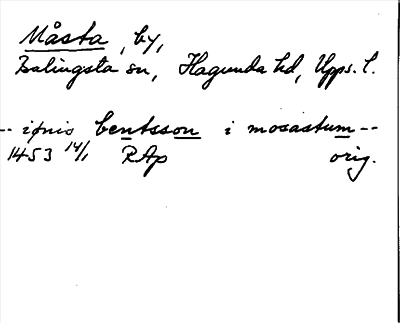 Måsta, by,
Balingsta sn, Hagunda hd, Upps. l.
-- i̶fnis bentsson i mosastum --
1453 14/1 RAp orig.